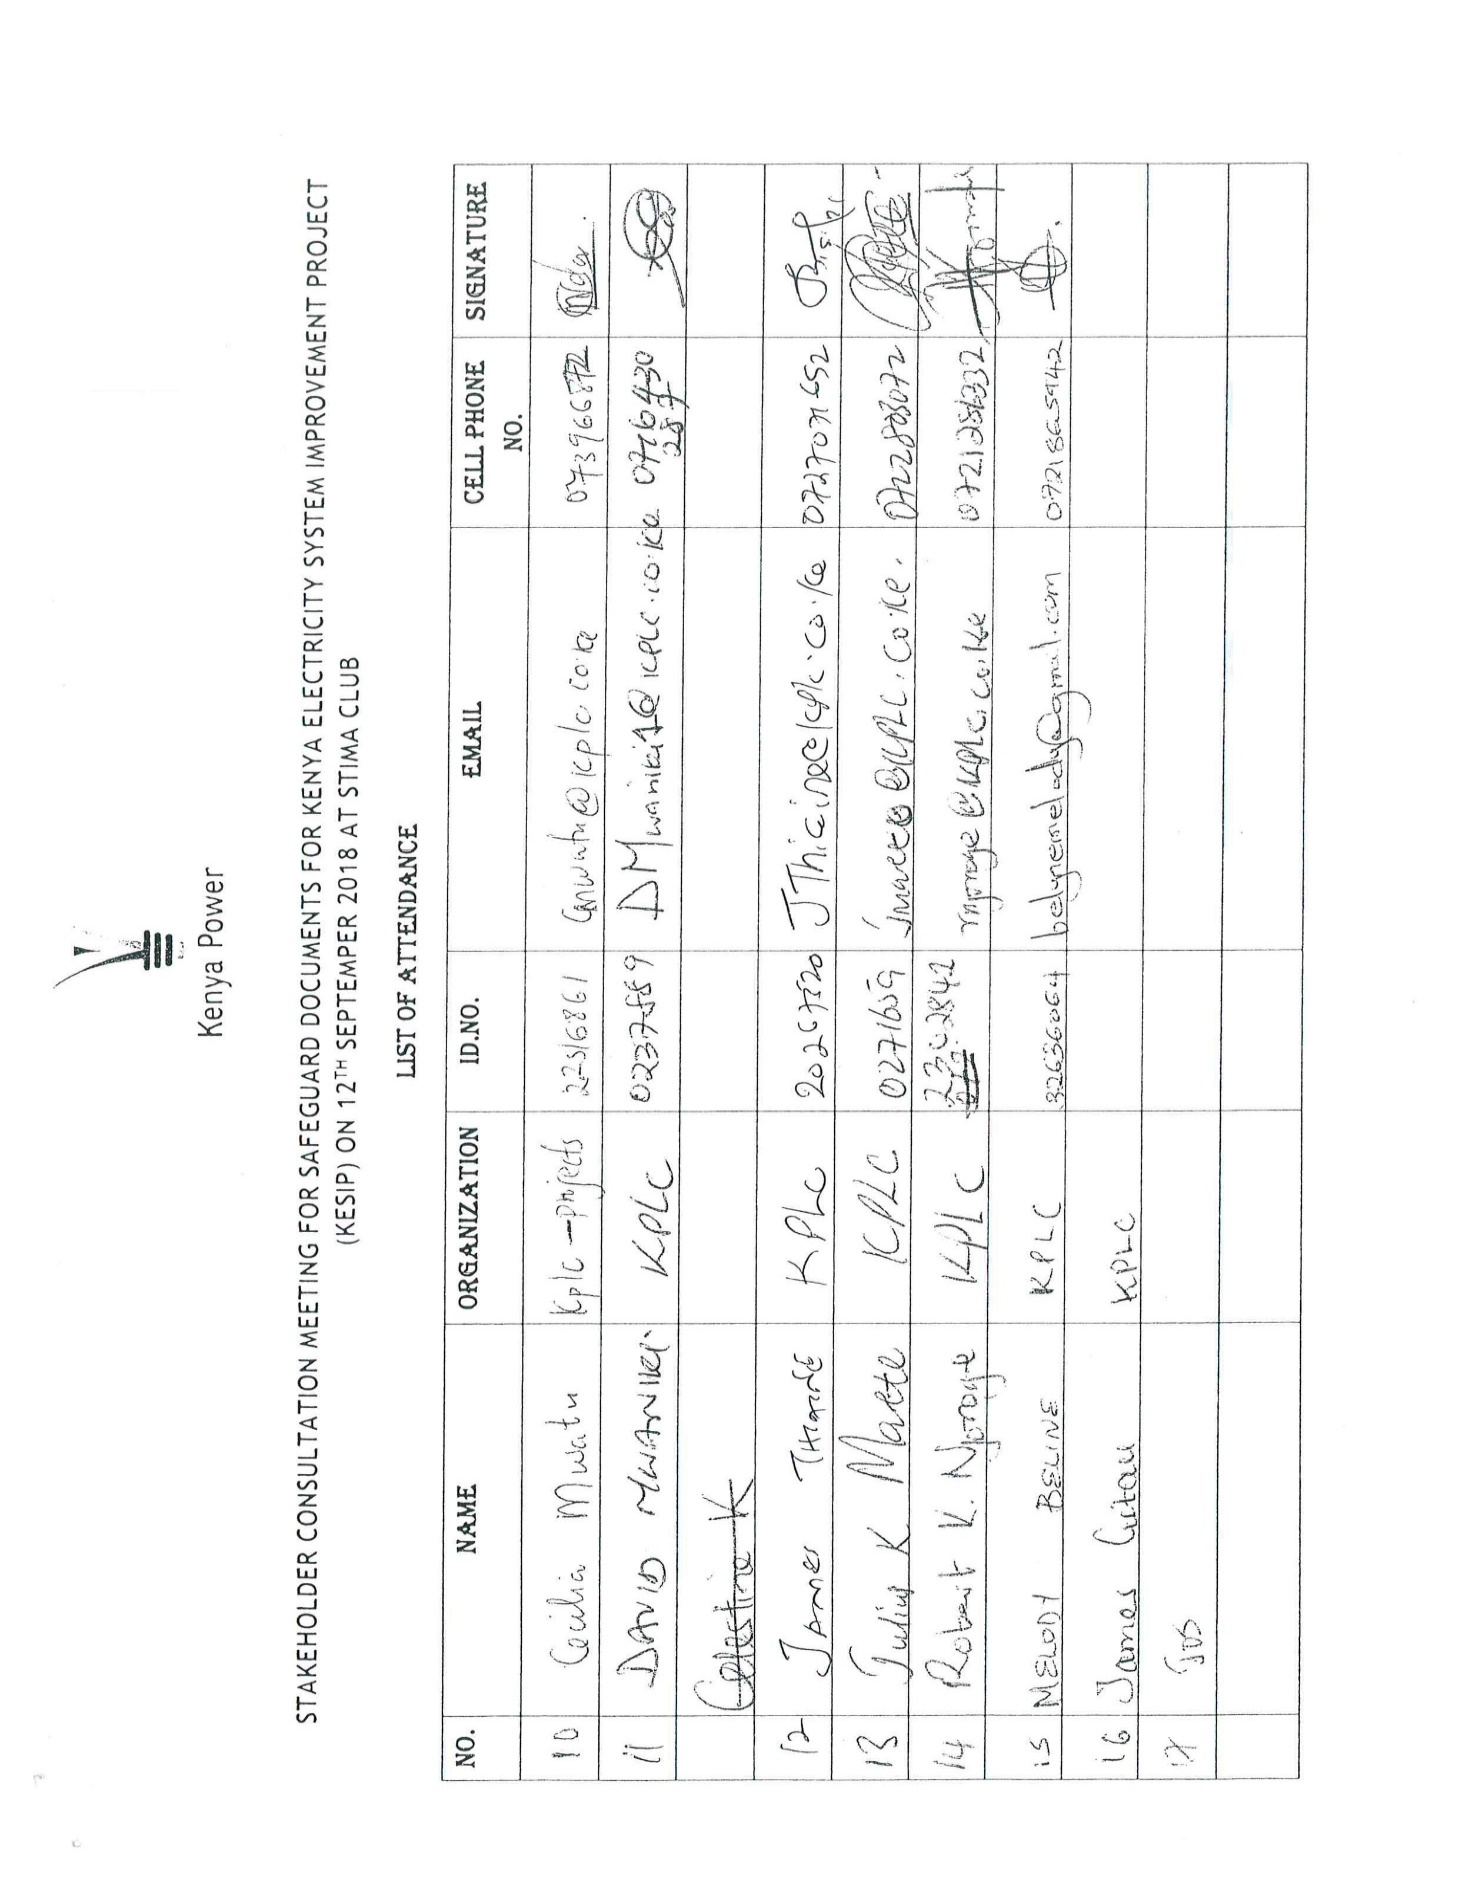 Kenya Power
STAKEHOLDER CONSULTATION MEETING FOR SAFEGUARD DOCUMENTS FOR KENYA ELECTRICITY SYSTEM IMPROVEMENT PROJECT
(KESIP) ON 12TH SEPTEMPER 2018 AT STIMA CLUB
LIST OF ATTENDANCE
NO. NAME ORGANIZATION ID.NO. EMAIL CELL PHONE NO. SIGNATURE
10 Cecilia Mwatu Kplc - projects 22516861 cmwatu@kplc.co.ke
11 DAVID MWANIKI KPLC DMwaniki1@kplc.co.ke
Celestine K
12 JAMES THIAINE KPLC JThiaine@kplc.co.ke 0727071652
13 Julius K Maete KPLC 0271659 0722808072
14 Robert K. Njoroge KPLC 2302842 rnjoroge@kplc.co.ke
15 MELODY BELINE KPLC 32636064 belynemelody@gmail.com 0721865942
16 James Gitau KPLC
17